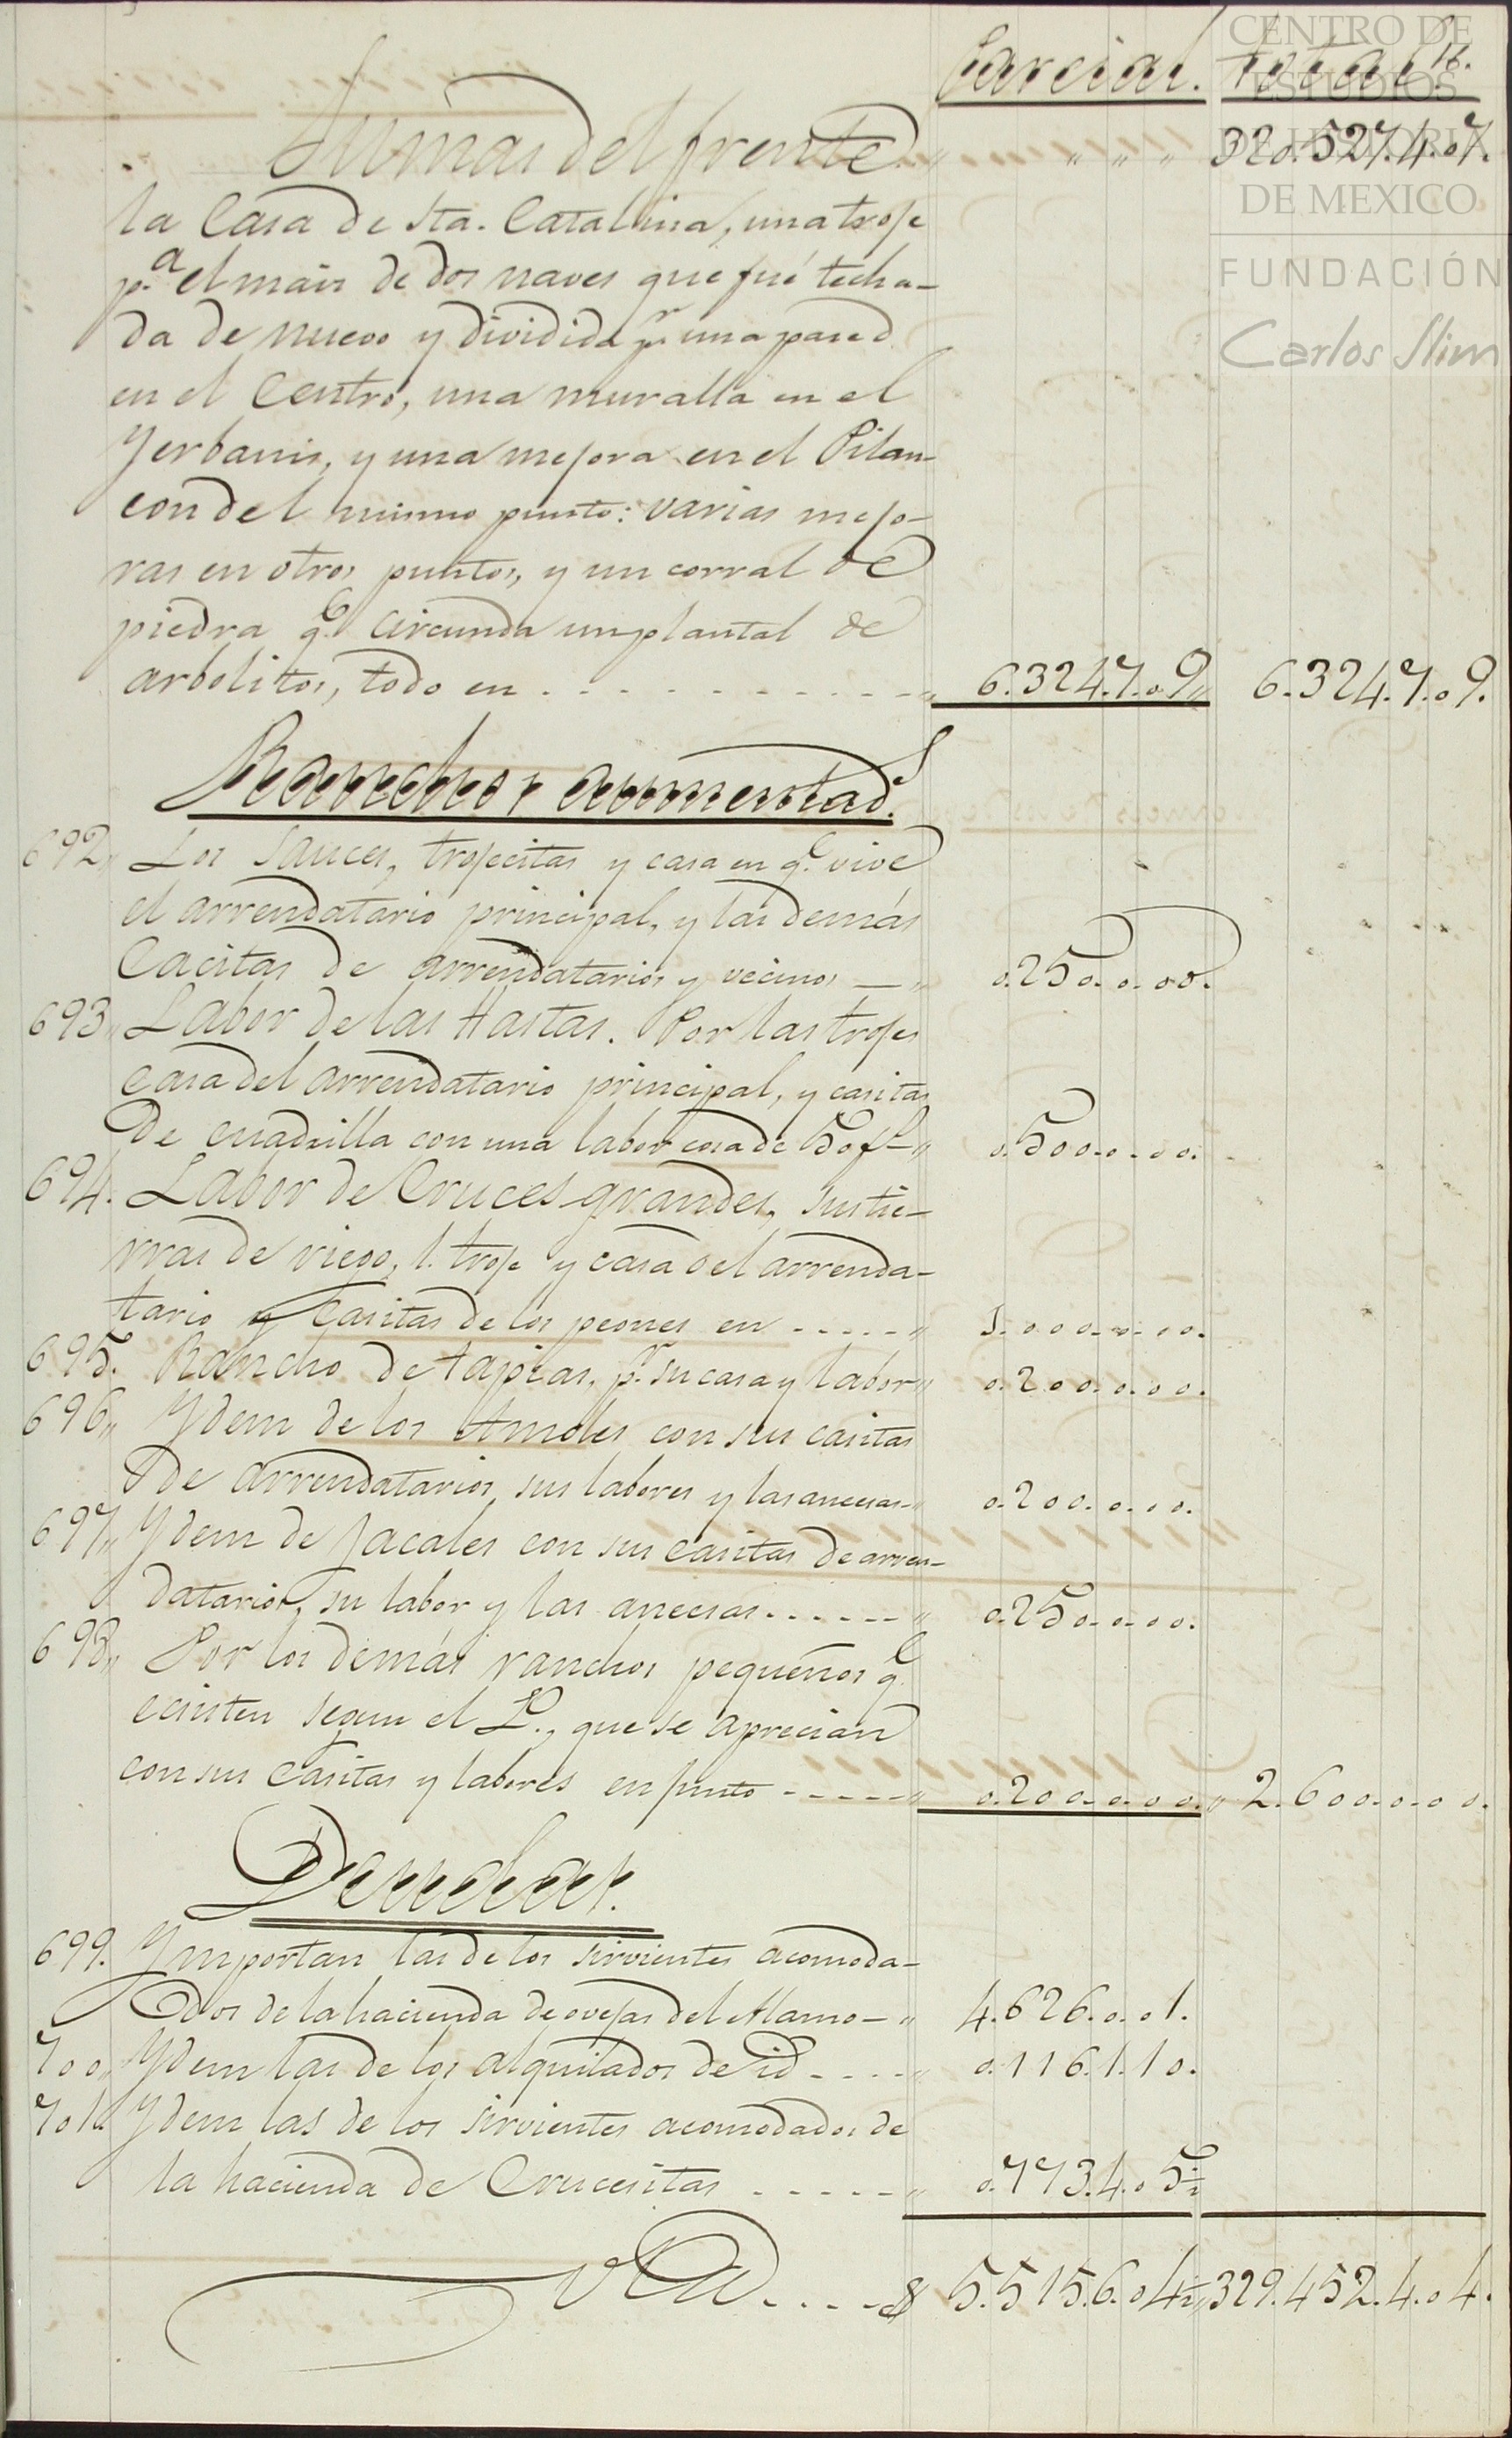 Parcial. Total.
Sumas del frente. " " " " 320.527.4.07.
la Casa de Sta. Catalina, una troje
p.a el mais de dos naves que fué techa-
da de nuevo y dividida p.r una pared
en el Centro, una muralla en el
Yerbanis, y una mejora en el Pilan-
con del mismo punto: varias mejo-
ras en otros puntos, y un corral de
piedra q.e circunda un plantal de
arbolitos, todo en . - - - - - - - - - " 6.324.7.09" 6.324.7.09.
Ranchos aumentad.s
692" Los Sauces, trojecitas y casa en q.e vive
el arrendatario principal, y las demás
Cacitas de arrendatarios y vecinos — " 0.250.0.00.
693" Labor de las Hastas. Por las trojes
casa del arrendatario principal, y casitas
de cuadrilla con una labor cosa de 50 f.s " 0.500.0.00.
694. Labor de Cruces grandes, sus tie-
rras de riego, 1. troje y casa del arrenda-
tario y Casitas de los peones en - - - - - " 1.000.0.00.
695. Rancho de tapias, p.r su casa y labor " 0.200.0.00.
696" Ydem de los Amoles con sus casitas
de arrendatarios sus labores y las anecsas - " 0.200.0.00.
697" Ydem de Jacales con sus casitas de arren-
datarios, su labor y las anecsas - - - - - - " 0.250.0.00.
698" Por los demás ranchos pequeños q.e
ecsisten segun el L., que se aprecian
con sus Casitas y labores en junto - - - - - " 0.200.0.00. " 2.600.0.00.
Deudas.
699. Ymportan las de los sirvientes acomoda-
dos de la hacienda de ovejas del Alamo - " 4.626.0.01.
700" Ydem las de los alquilados de id - - - - " 0.116.1.10.
701. Ydem las de los sirvientes acomodados de
la hacienda de Crucesitas - - - - - " 0.773.4.05½
Vta - - - - $ 5.515.6.04½ " 329.452.4.04.
CENTRO DE
ESTUDIOS
DE HISTORIA
DE MEXICO
FUNDACIÓN
Carlos Slim